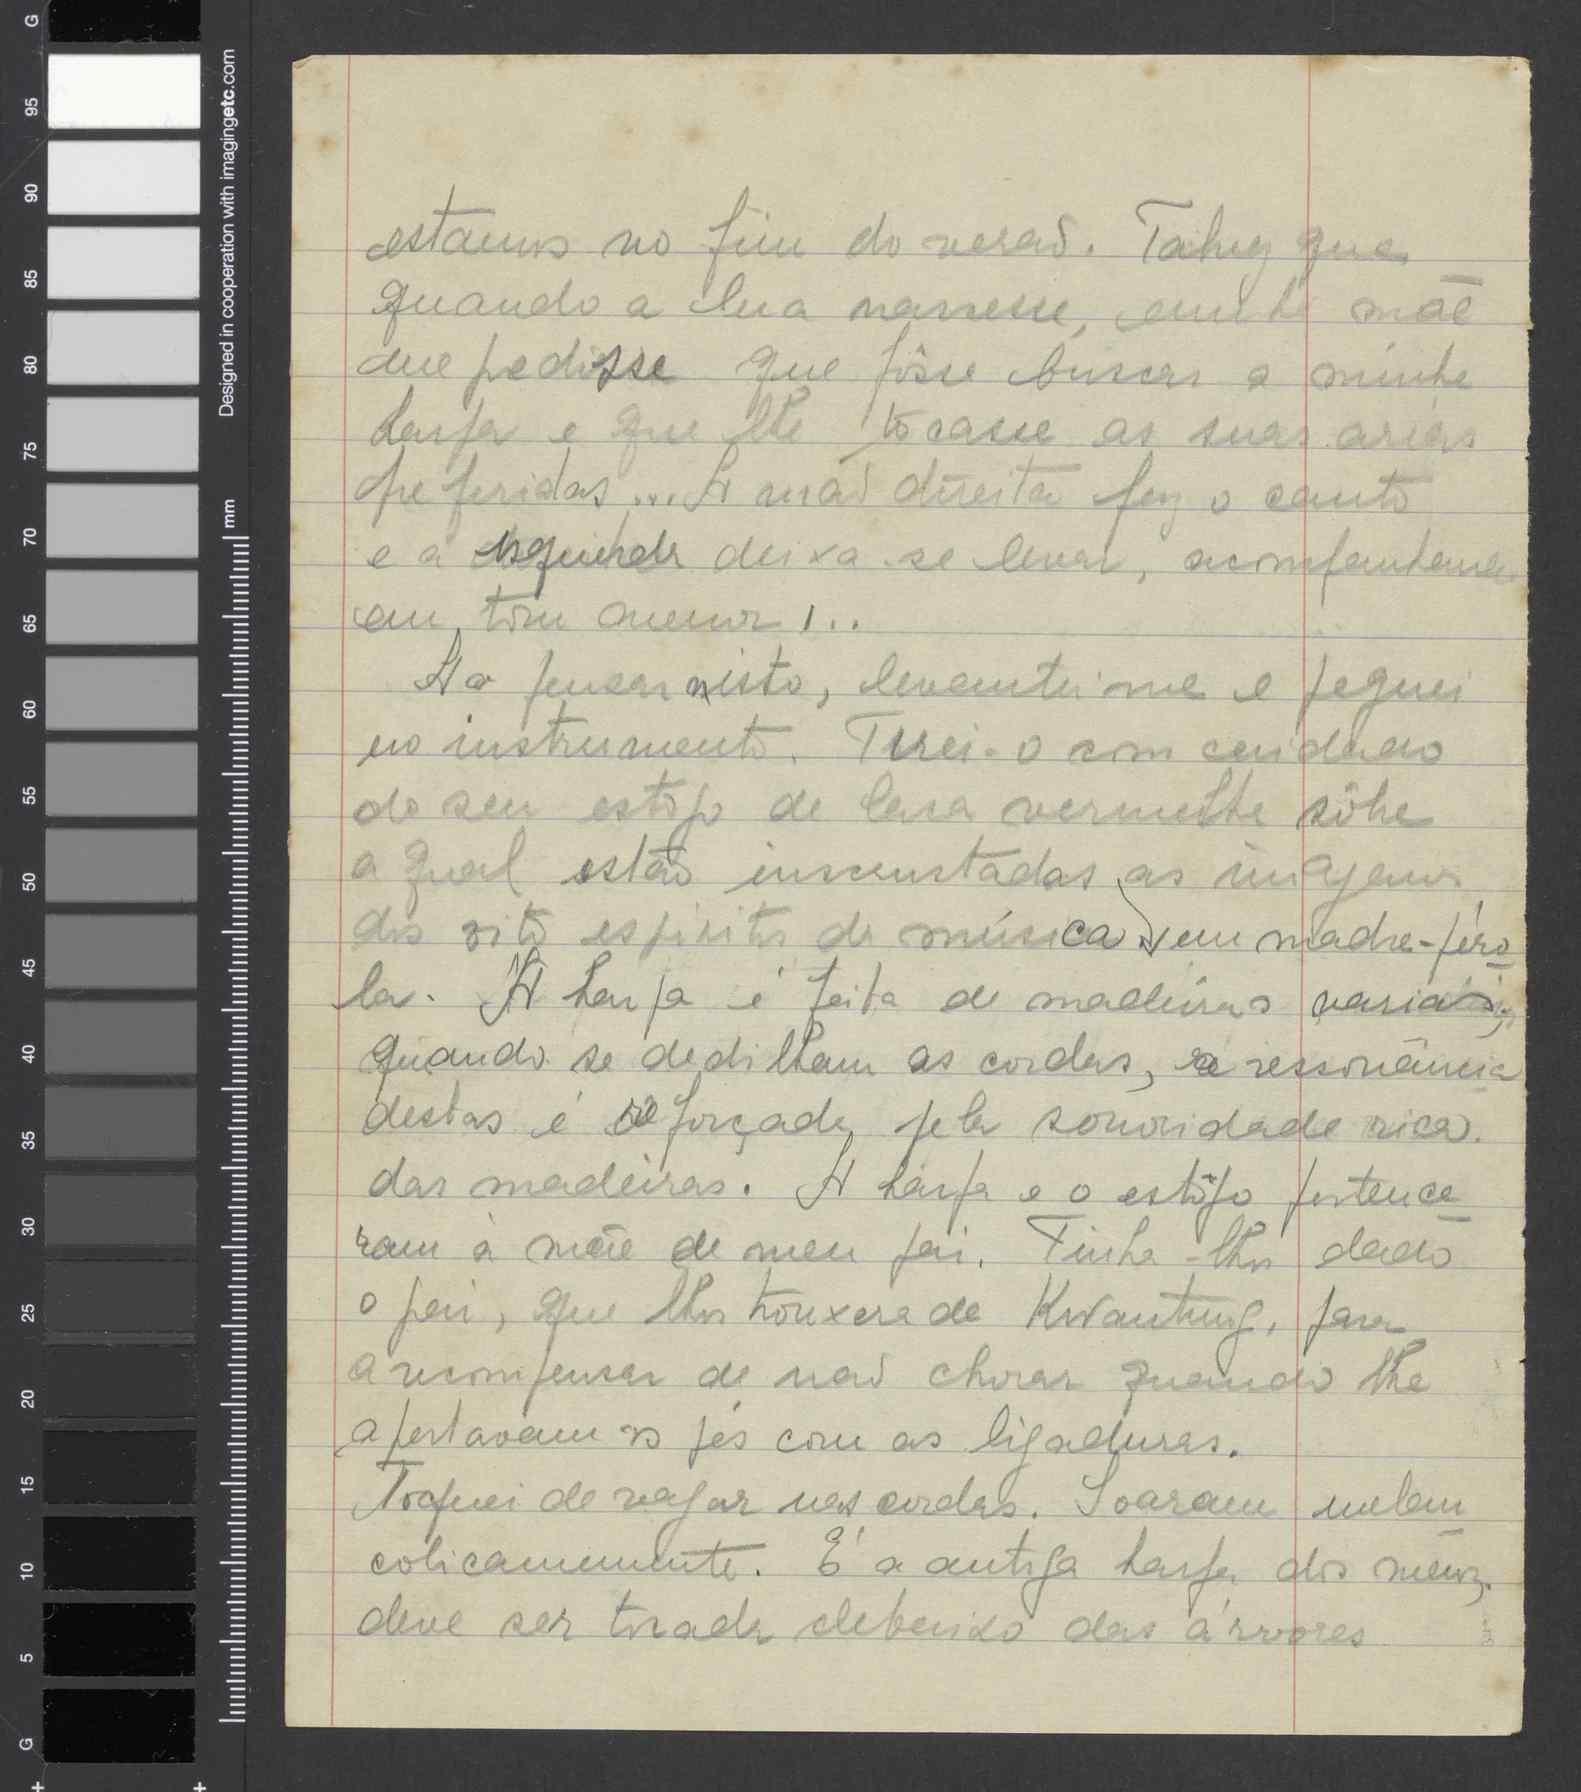 estamos no fim do verão. Talvez que
quando a lua nascesse, minha mãe
me pedisse que fôsse buscar a minha
harpa e que lhe tocasse as suas arias
preferidas... A mão direita faz o canto
e a esquerda deixa-se levar, acompanhana
em tom menor!...
Ao pensar nisto, levantei-me e peguei
no instrumento. Tirei-o com cuidado
do seu estojo de laca vermelha sôbre
a qual estão inscrustadas as imagens
dos oito espiritos da música em madre-péro
la. A harpa é feita de madeiras varias;
quando se dedilham as cordas, a ressonância
destas é reforçada pela sonoridade rica
das madeiras. A harpa e o estôjo pertence
ram à mãe de meu pai. Tinha-lhos dado
o pai, que lhos trouxera de Kwantung, para
a recompensar de não chorar quando lhe
apertavam os pés com as ligaduras.
Toquei de vagar nas cordas. Soaram melan
colicamemente. É a antiga harpa dos meus,
deve ser tocada debaixo das árvores
G
95
90
85
80
75
70
65
60
55
50
45
40
35
30
25
20
15
10
5
G
Designed in cooperation with imagingetc.com
mm